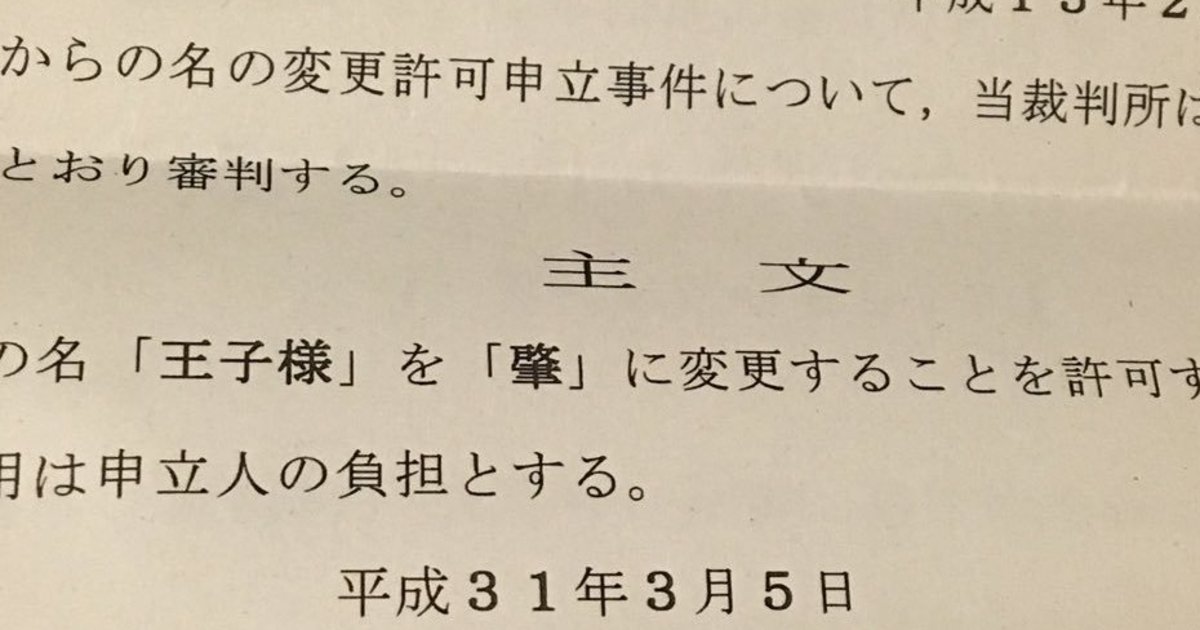 からの名の変更許可申立事件について，当裁判所は
とおり審判する。
主 文
の名「王子様」を「肇」に変更することを許可す
用は申立人の負担とする。
平成３１年３月５日